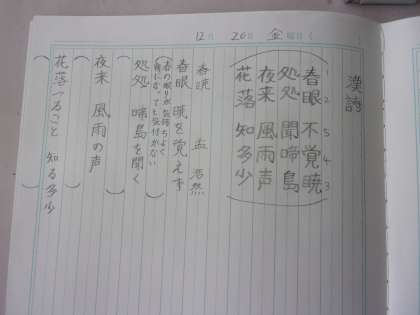 12月 26日 金曜日
漢詩
春眼 不覚暁
1 2 5 4 3
処処 聞啼島
夜来 風雨声
花落 知多少
春暁 孟 浩然
春眼 暁を覚えず
(春の眠りが気持ちよく
朝になっても気付かない)
処処 啼島を聞く
( )
夜来 風雨の声
( )
花落つること 知る多少
( )